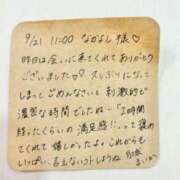 9/21 11:00 なかよし様♡
昨日は会いに来てくれてありがとう
ございました♡ 久しぶりになって
しまってごめんなさい 刺激的で
濃密な時間でしたね…「2時間
経ったくらいの満足感!!」って褒め
てくれて嬉しかったよ これからも
いっぱい言えないコトしようね
まいか